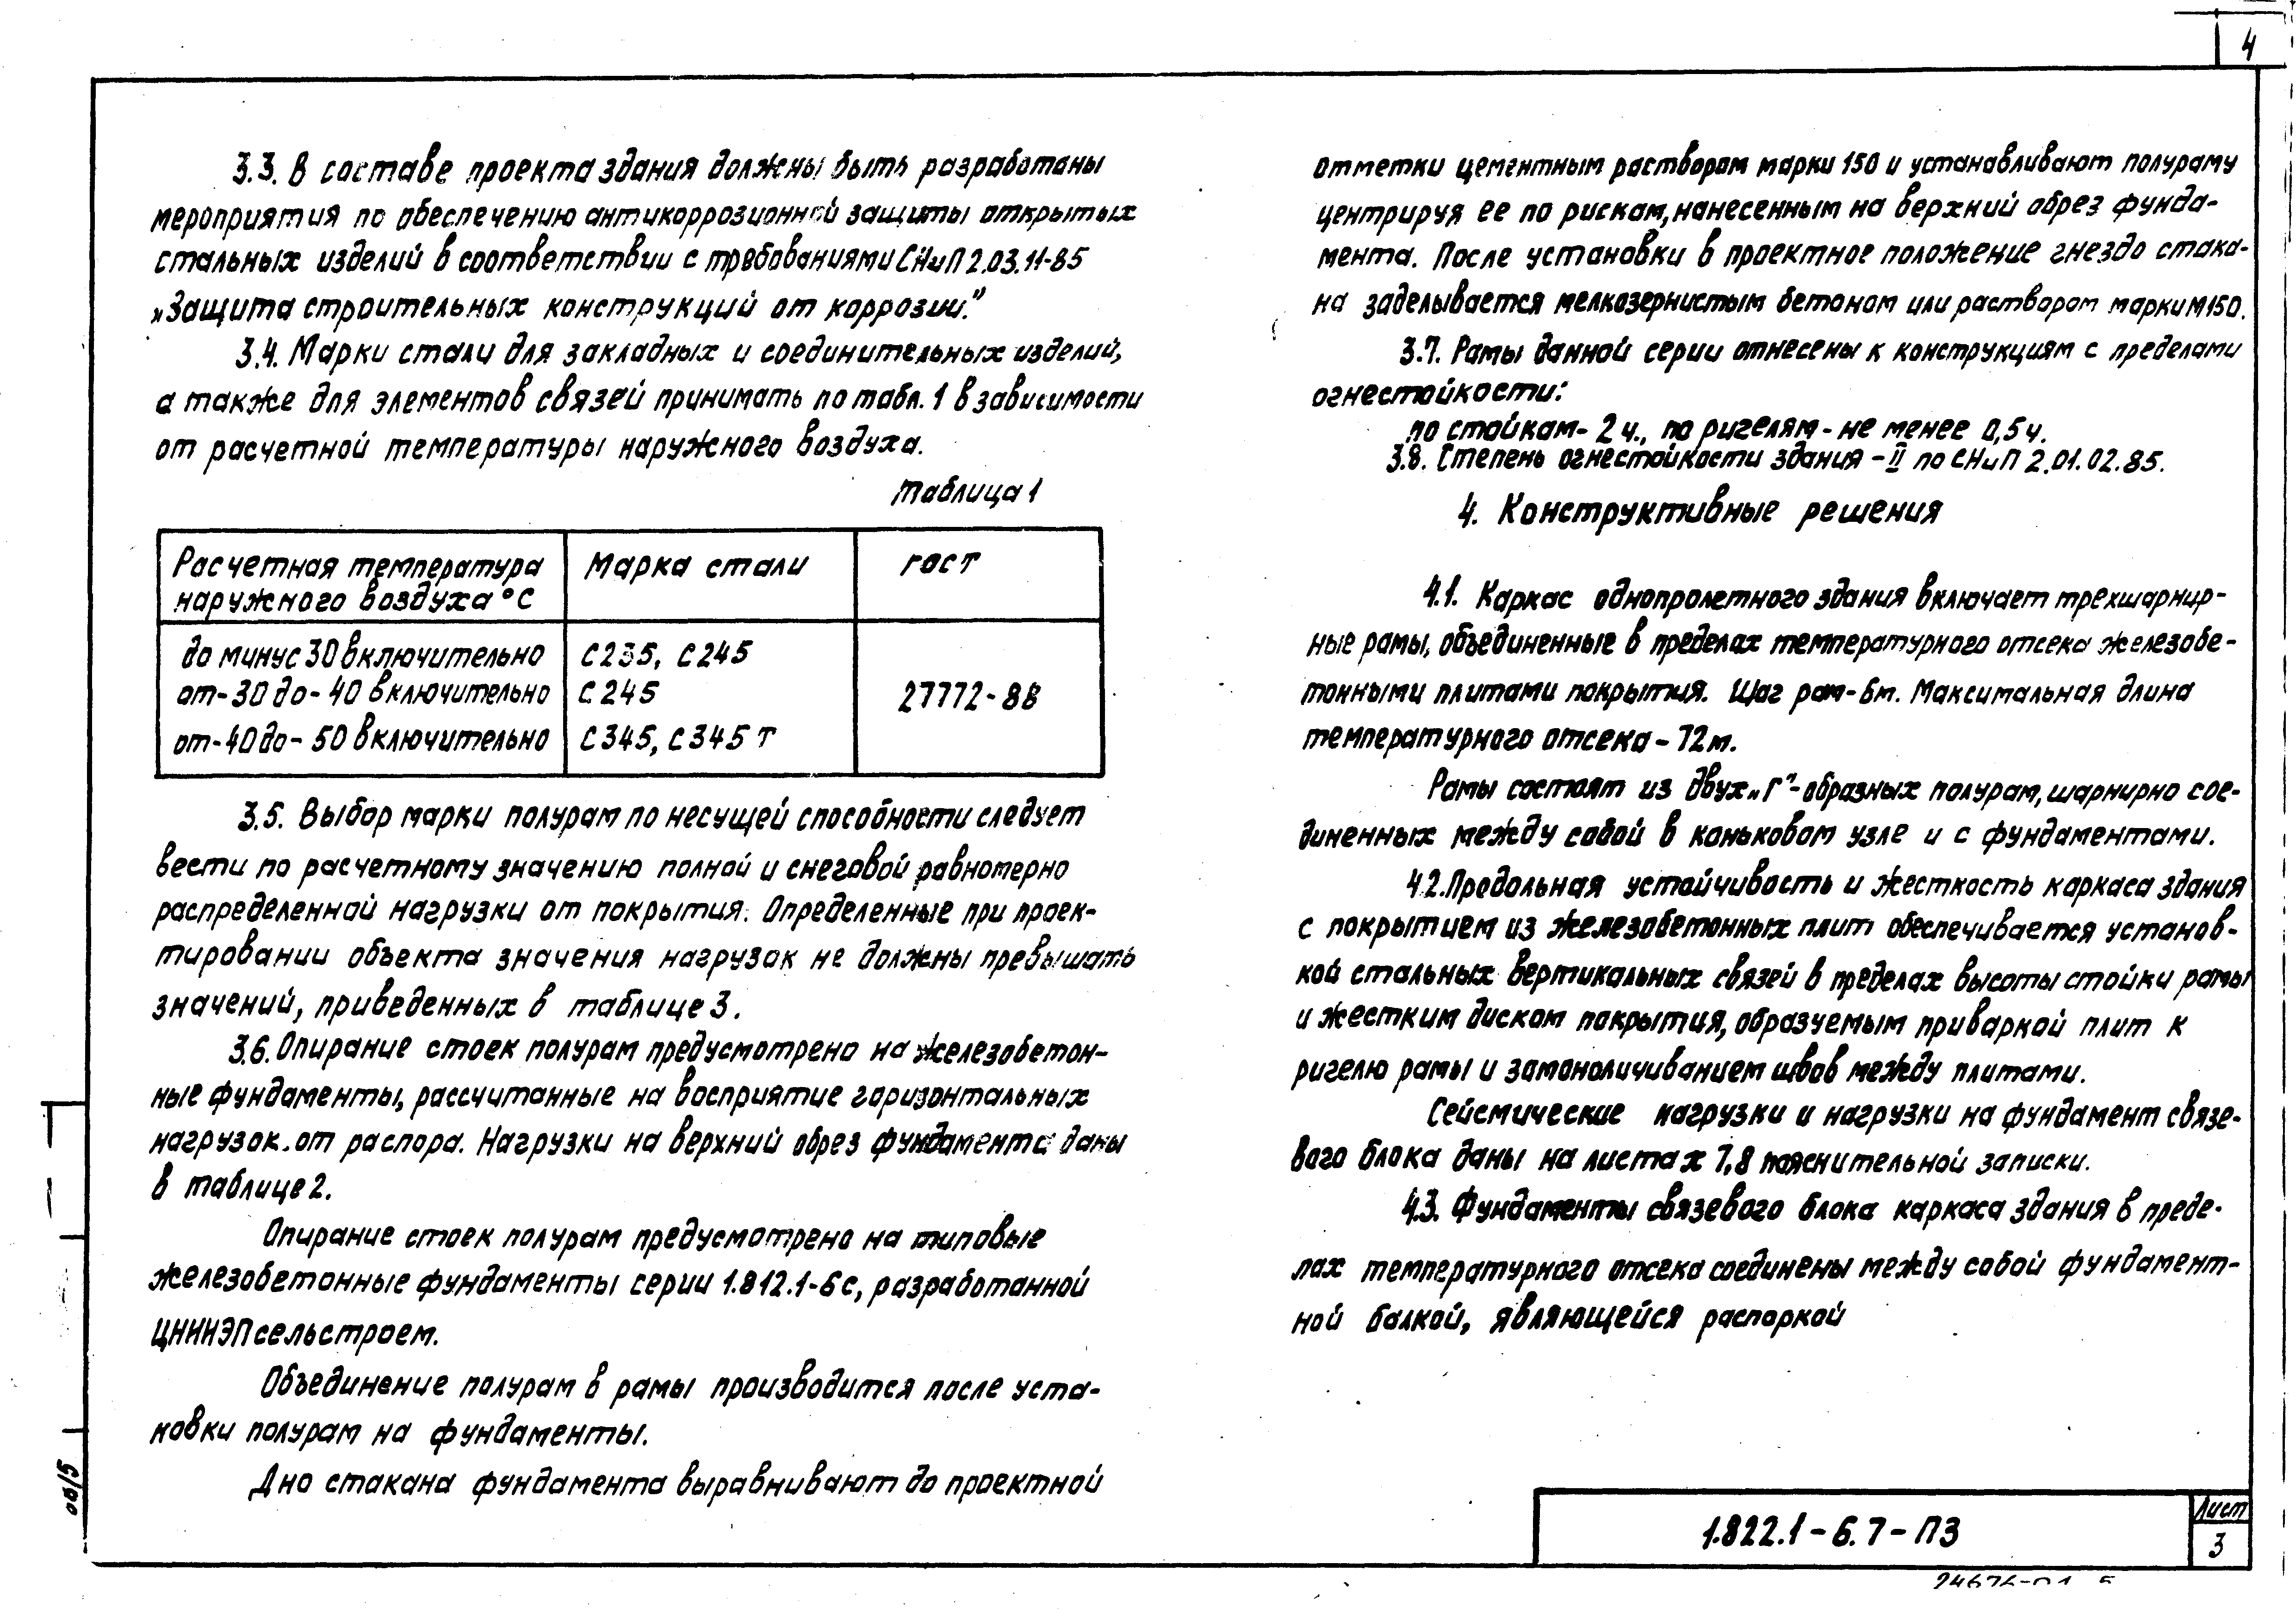 4
3.3. В составе проекта здания должны быть разработаны
мероприятия по обеспечению антикоррозионной защиты открытых
стальных изделий в соответствии с требованиями СНиП 2.03.11-85
„Защита строительных конструкций от коррозии."
3.4. Марки стали для закладных и соединительных изделий,
а также для элементов связей принимать по табл. 1 в зависимости
от расчетной температуры наружного воздуха.
Таблица 1
Расчетная температура
наружного воздуха °С
Марка стали
ГОСТ
до минус 30 включительно
С 235, С 245
от-30 до-40 включительно
С 245
27772-88
от-40 до-50 включительно
С 345, С 345 Т
3.5. Выбор марки полурам по несущей способности следует
вести по расчетному значению полной и снеговой равномерно
распределенной нагрузки от покрытия. Определенные при проек-
тировании объекта значения нагрузок не должны превышать
значений, приведенных в таблице 3.
3.6. Опирание стоек полурам предусмотрено на железобетон-
ные фундаменты, рассчитанные на восприятие горизонтальных
нагрузок от распора. Нагрузки на верхний обрез фундамента даны
в таблице 2.
Опирание стоек полурам предусмотрено на типовые
железобетонные фундаменты серии 1.812.1-6с, разработанной
ЦНИИЭПсельстроем.
Объединение полурам в рамы производится после уста-
новки полурам на фундаменты.
Дно стакана фундамента выравнивают до проектной
отметки цементным раствором марки 150 и устанавливают полураму
центрируя ее по рискам, нанесенным на верхний обрез фунда-
мента. После установки в проектное положение гнездо стака-
на заделывается мелкозернистым бетоном или раствором марки М150.
3.7. Рамы данной серии отнесены к конструкциям с пределами
огнестойкости:
по стойкам- 2 ч., по ригелям - не менее 0,5 ч.
3.8. Степень огнестойкости здания - II по СНиП 2.01.02.85.
4. Конструктивные решения
4.1. Каркас однопролетного здания включает трехшарнир-
ные рамы, объединенные в пределах температурного отсека железобе-
тонными плитами покрытия. Шаг рам-6м. Максимальная длина
температурного отсека - 72м.
Рамы состоят из двух „Г"-образных полурам, шарнирно сое-
диненных между собой в коньковом узле и с фундаментами.
4.2. Продольная устойчивость и жесткость каркаса здания
с покрытием из железобетонных плит обеспечивается установ-
кой стальных вертикальных связей в пределах высоты стойки рамы
и жестким диском покрытия, образуемым приваркой плит к
ригелю рамы и замоноличиванием швов между плитами.
Сейсмические нагрузки и нагрузки на фундамент связе-
вого блока даны на листах 7,8 пояснительной записки.
4.3. Фундаменты связевого блока каркаса здания в преде-
лах температурного отсека соединены между собой фундамент-
ной балкой, являющейся распоркой
об/5
1.822.1-6.7-ПЗ
Лист
3